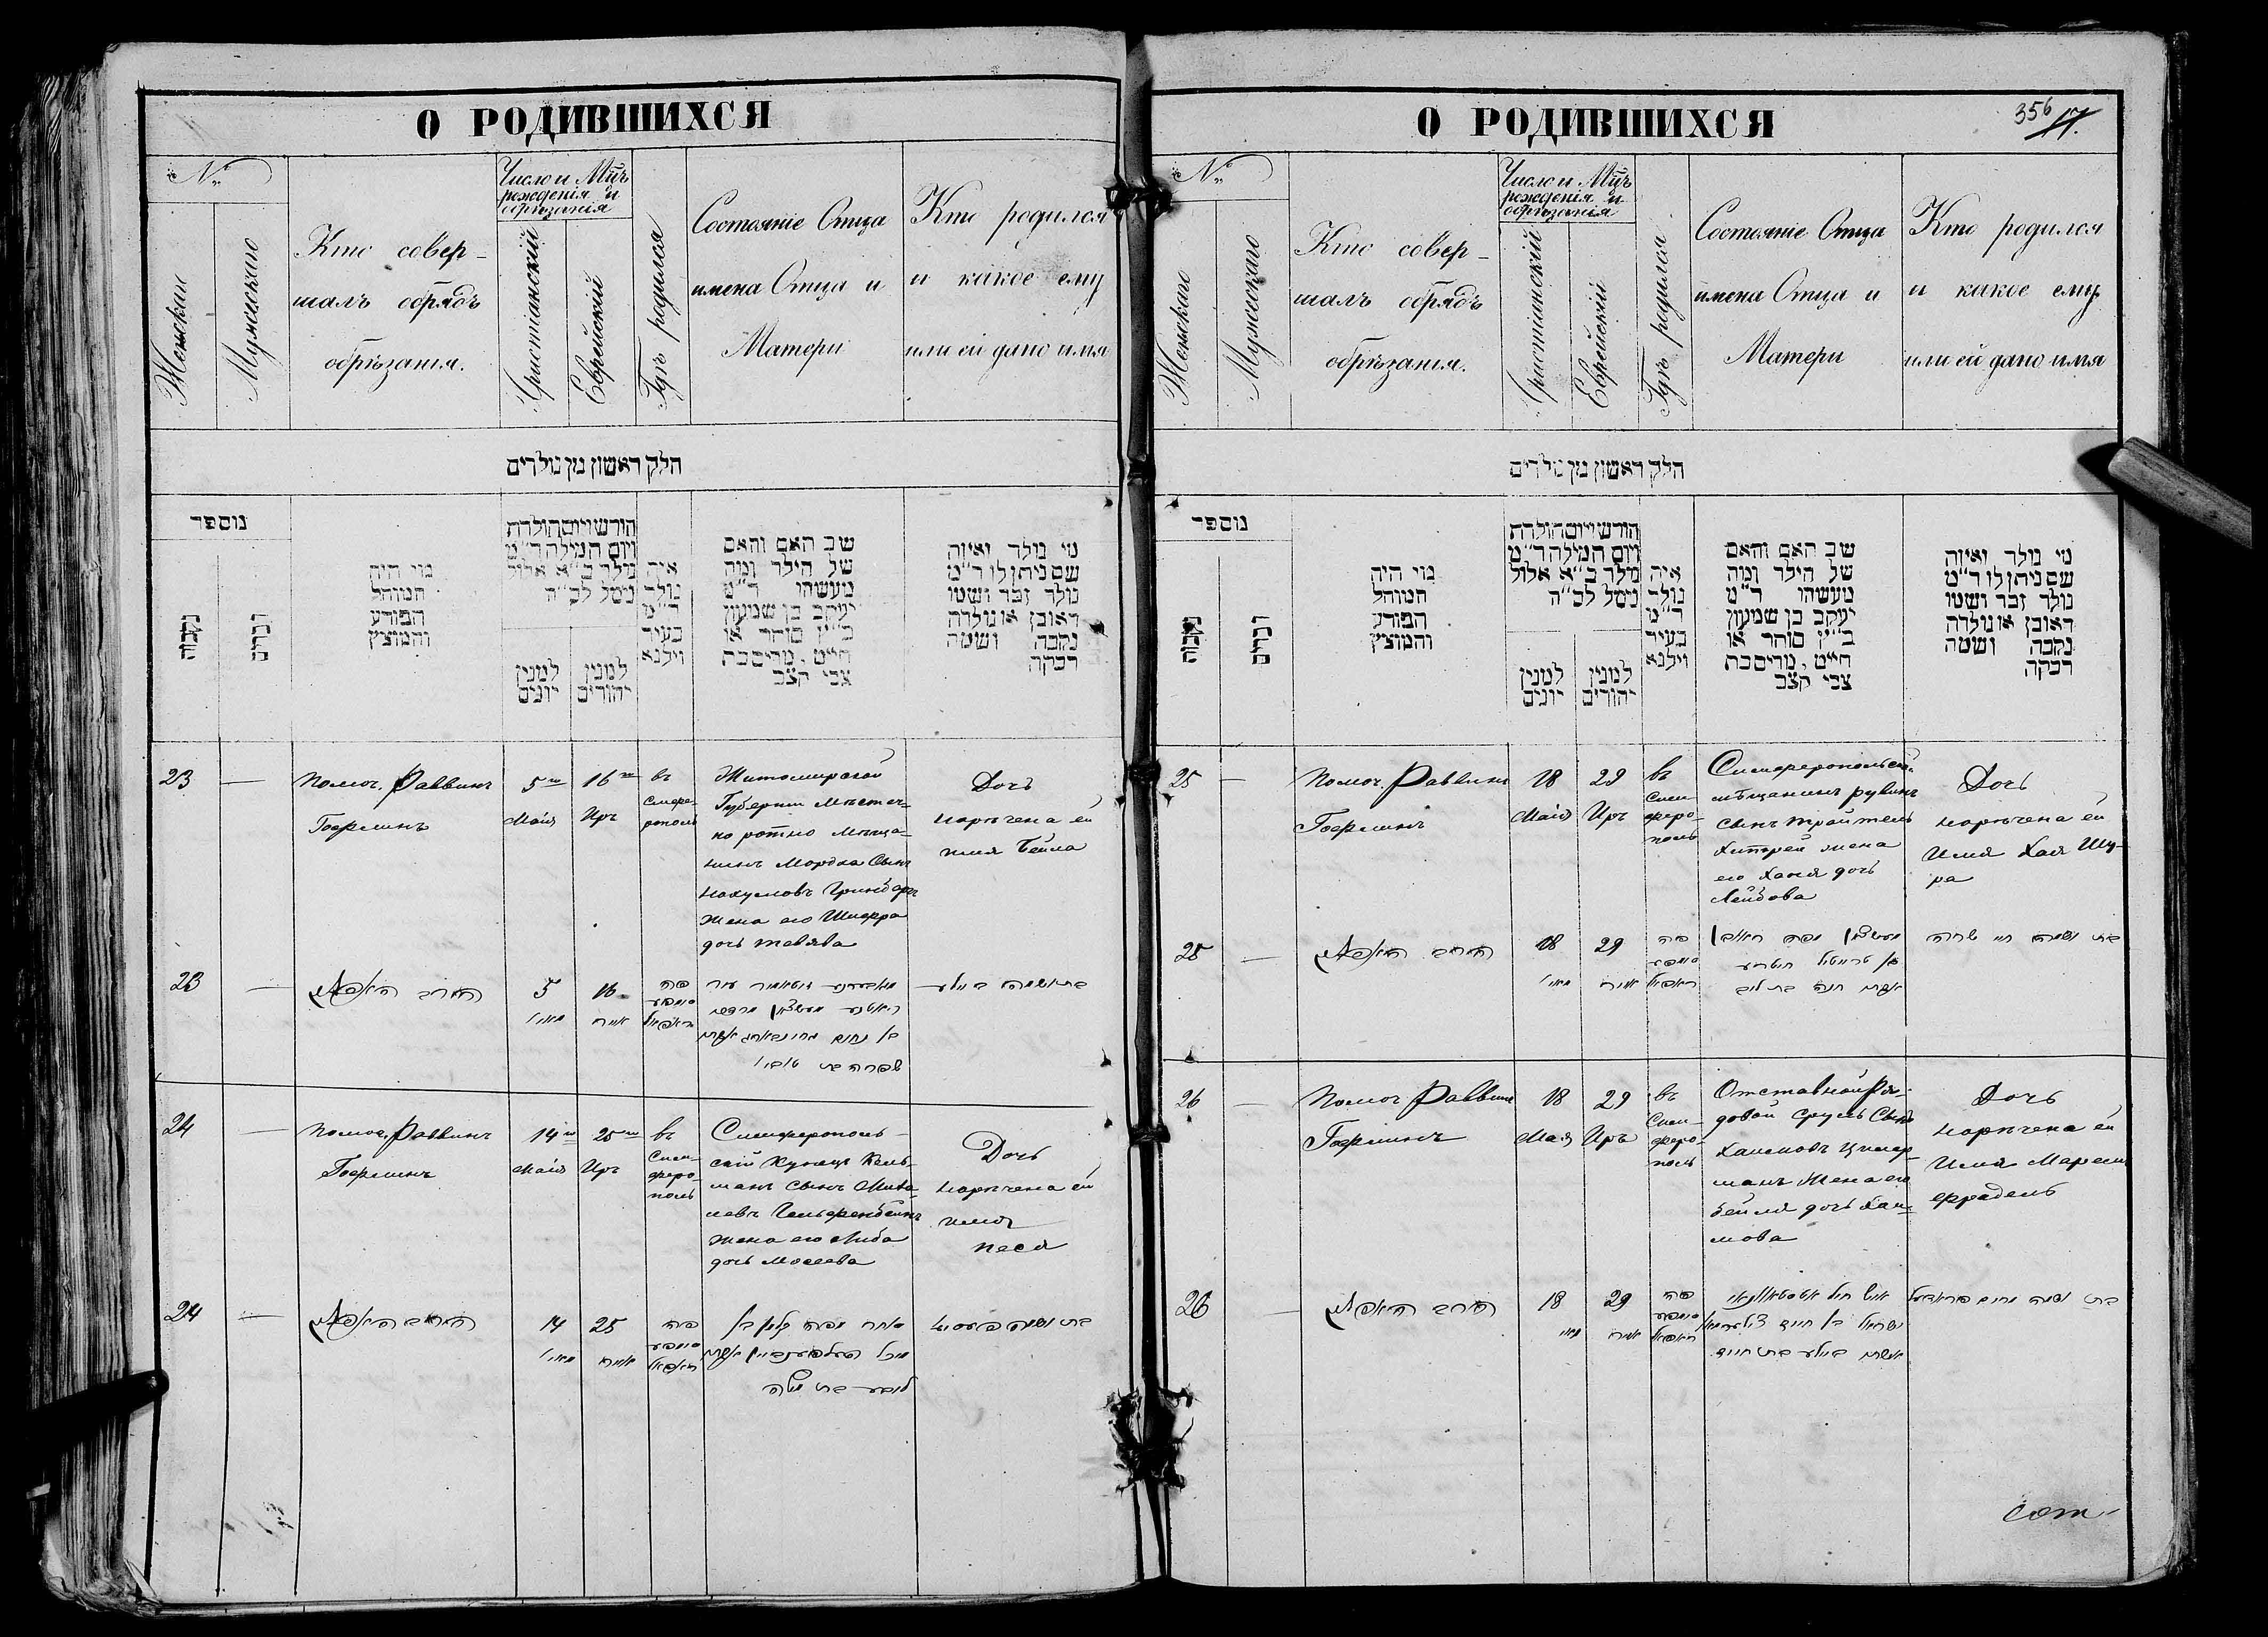 О РОДИВШИХСЯ
№
Женскаго
Мужескаго
Кто совер-
шалъ обрядъ
обрѣзанія.
Число и Мѣц.
рожденія и
обрѣзанія
Христіанскій
Еврейскій
Гдѣ родился
Состояніе Отца
имена Отца и
Матери
Кто родился
и какое ему
или ей дано имя
חלק ראשון מן נולדים
מספר
נקבות
זכרים
מי היה
המוהל
הפורע
והמוצץ
חודש ויום הולדת
ויום המילה ד״מ
נולד כ״א אלול
נימל לכ״ה
למנין
יונים
למנין
יהודים
איה
נולד
ד״מ
בעיר
וילנא
שם האב והאם
של הילד ומה
מעשהו ד״מ
יעקב בן שמעון
כ״ץ סוחר או
חייט, מרים בת
צבי קצב
מי נולד ואיזה
שם ניתן לו ד״מ
נולד זכר ושמו
ראובן או נולדה
נקבה ושמה
רבקה
23 — Помоч. Раввинъ
Гофминъ
5го
Маія
16го
Иръ
въ
Симфе-
рополь
Житомирской
Губерніи Мѣстеч-
ко ротно Мѣща-
нинъ Мордка Сынъ
Нахумовъ Гринберг
Жена его Шифра
дочь Тевява
Дочь
наречена ей
имя Бейла
23 —
5
מאיי
16
אייר
פה
סימפע
ראפאל
בת ושמה ביילע
24 — Помоч. Раввинъ
Гофминъ
14го
Маія
25го
Иръ
въ
Сим-
феро-
поль
Симферополь-
скій Купецъ Кель-
манъ Сынъ Миха-
левъ Гельфенбейнъ
Жена его Либа
дочь Мосеева
Дочь
наречена ей
имя
Песя
24 —
14
מאיי
25
אייר
פה
סימפע
ראפאל
מיכל העלפענביין אשתו
ליבע בת משה
О РОДИВШИХСЯ
356
17.
№
Женскаго
Мужескаго
Кто совер-
шалъ обрядъ
обрѣзанія.
Число и Мѣц.
рожденія и
обрѣзанія
Христіанскій
Еврейскій
Гдѣ родился
Состояніе Отца
имена Отца и
Матери
Кто родился
и какое ему
или ей дано имя
חלק ראשון מן נולדים
מספר
נקבות
זכרים
מי היה
המוהל
הפורע
והמוצץ
חודש ויום הולדת
ויום המילה ד״מ
נולד כ״א אלול
נימל לכ״ה
למנין
יונים
למנין
יהודים
איה
נולד
ד״מ
בעיר
וילנא
שם האב והאם
של הילד ומה
מעשהו ד״מ
יעקב בן שמעון
כ״ץ סוחר או
חייט, מרים בת
צבי קצב
מי נולד ואיזה
שם ניתן לו ד״מ
נולד זכר ושמו
ראובן או נולדה
נקבה ושמה
רבקה
25 — Помоч. Раввинъ
Гофминъ
18
Маія
29
Иръ
въ
Сим-
феро-
поль
Симферопольскій
мѣщанинъ рувинъ
Сынъ Трайтель
жена
его Ханя дочь
Лейбова
Дочь
наречена ей
Имя Хая Шу-
ра
25 —
18
מאיי
29
אייר
פה
סימפע
ראפאל
בן טרייטיל
אשתו חנה בת לוב
בת ושמה חיי שרה
26 — Помоч Раввинъ
Гофминъ
18
Мая
29
Иръ
въ
Сим-
феро-
поль
Отставной Ря-
довой Сруль Сынъ
Хаимовъ Цимер-
манъ Жена его
Бейля дочь Хаи-
мова
Дочь
наречена ей
Имя Маріемъ
Фрадель
26 —
18
מאיי
29
אייר
פה
סימפע
ראפאל
ישראל בן חיים צימערמאן
אשתו ביילע בת חיים
בת ושמה מרים פראדעל